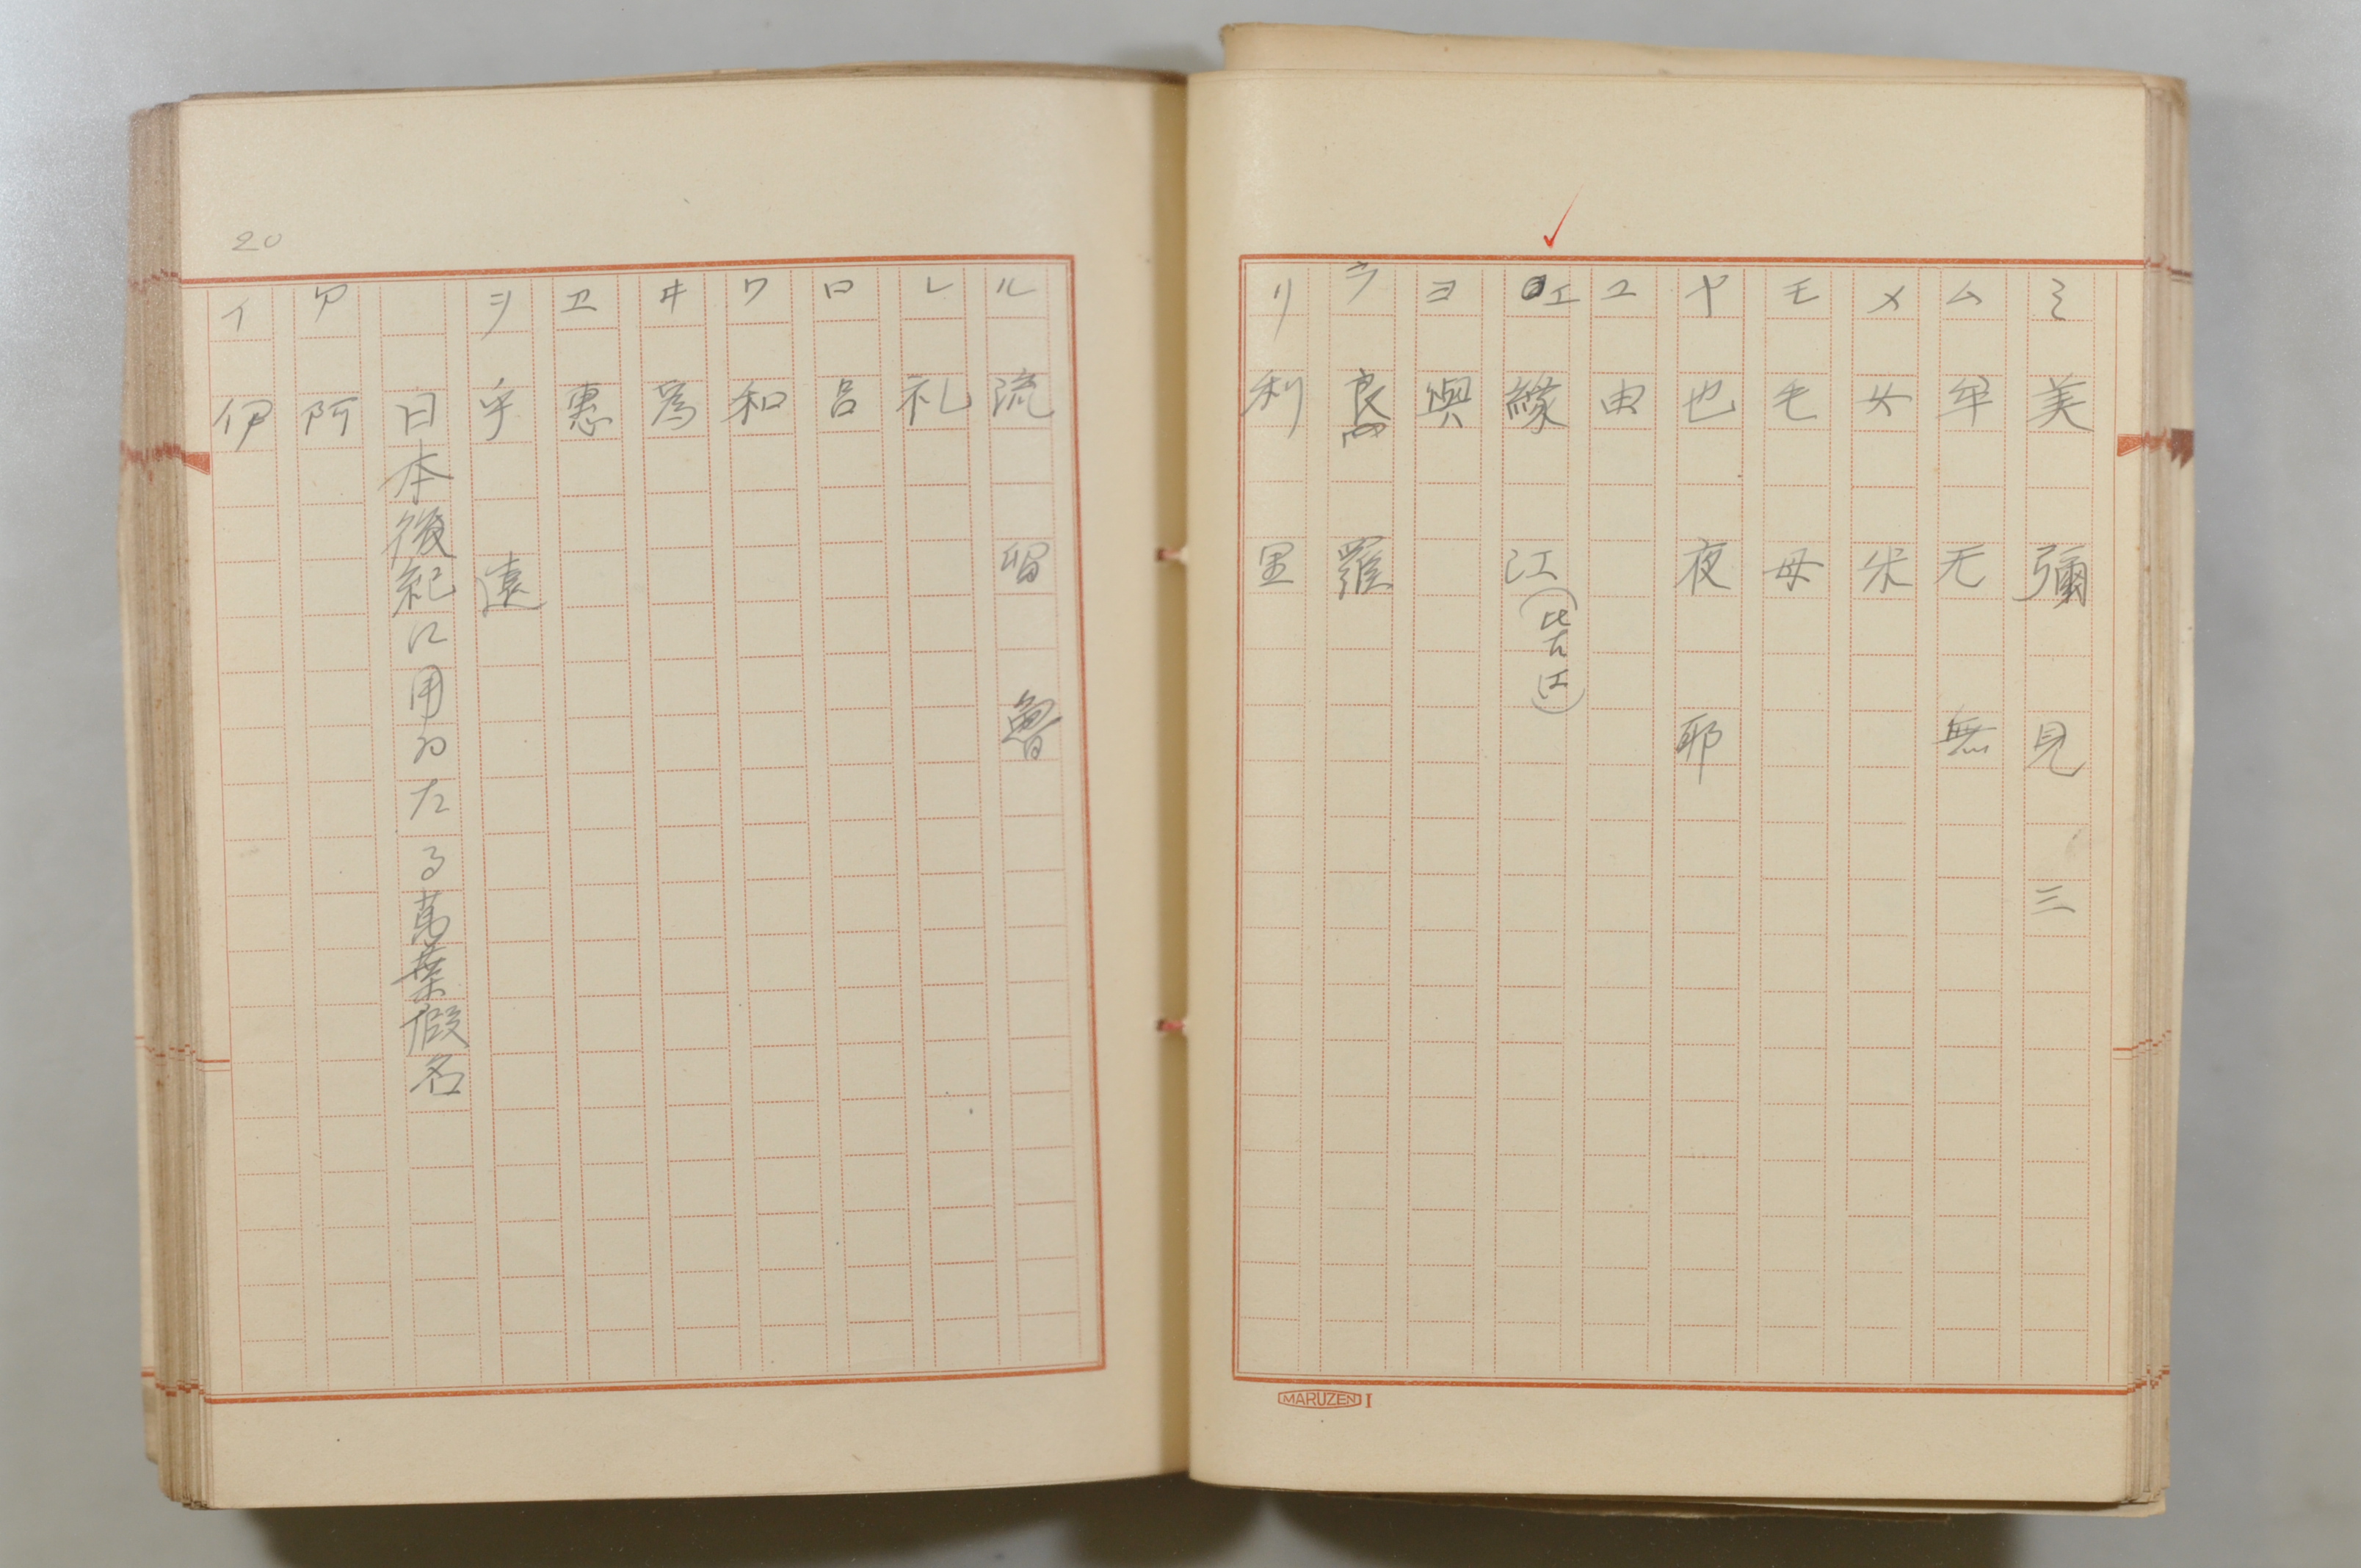 ミ 美 彌 見 三
ム 牟 无 無
メ 女 米
モ 毛 母
ヤ 也 夜 耶
ユ 由
江 縁 江(皆江)
ヨ 與
ラ 良 羅
リ 利 里
MARUZEN I
ル 流 留 魯
レ 礼
ロ 呂
ワ 和
ヰ 爲
ヱ 惠
ヲ 乎 遠
日本後紀に用ゐたる萬葉假名
ア 阿
イ 伊
20